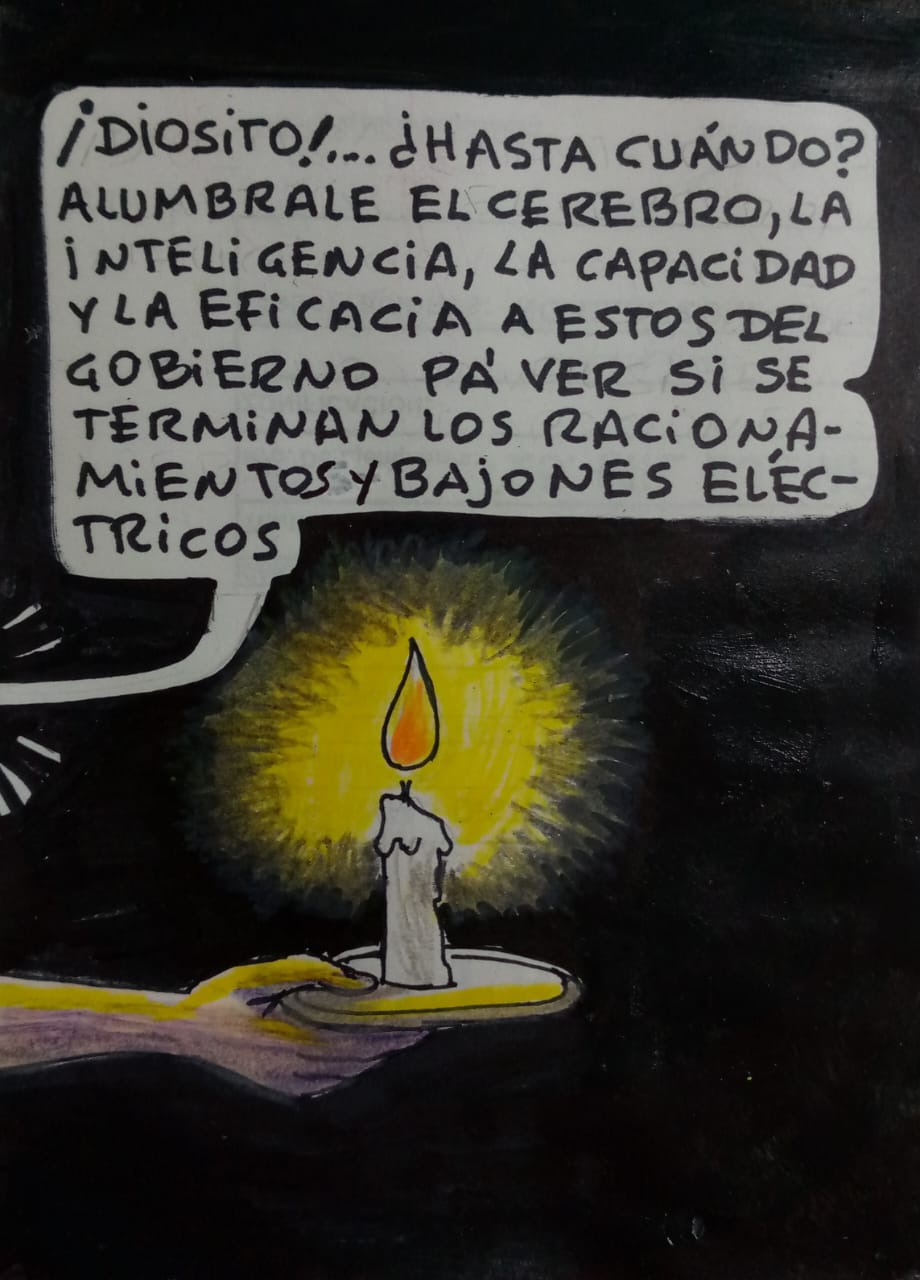 ¡DIOSITO!... ¿HASTA CUÁNDO?
ALUMBRALE EL CEREBRO, LA
INTELIGENCIA, LA CAPACIDAD
Y LA EFICACIA A ESTOS DEL
GOBIERNO PÁ VER SI SE
TERMINAN LOS RACIONA-
MIENTOS Y BAJONES ELÉC-
TRICOS